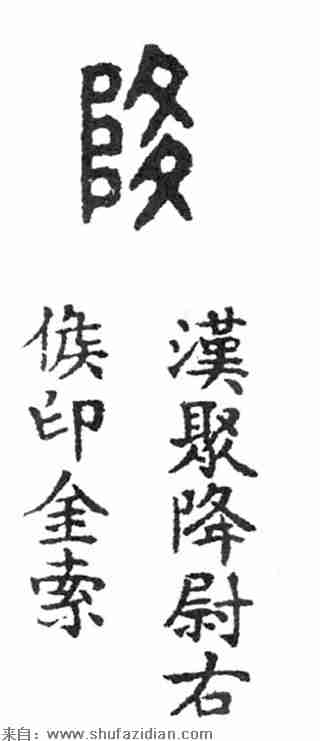 降
漢聚降尉右
候印金索
来自：www.shufazidian.com